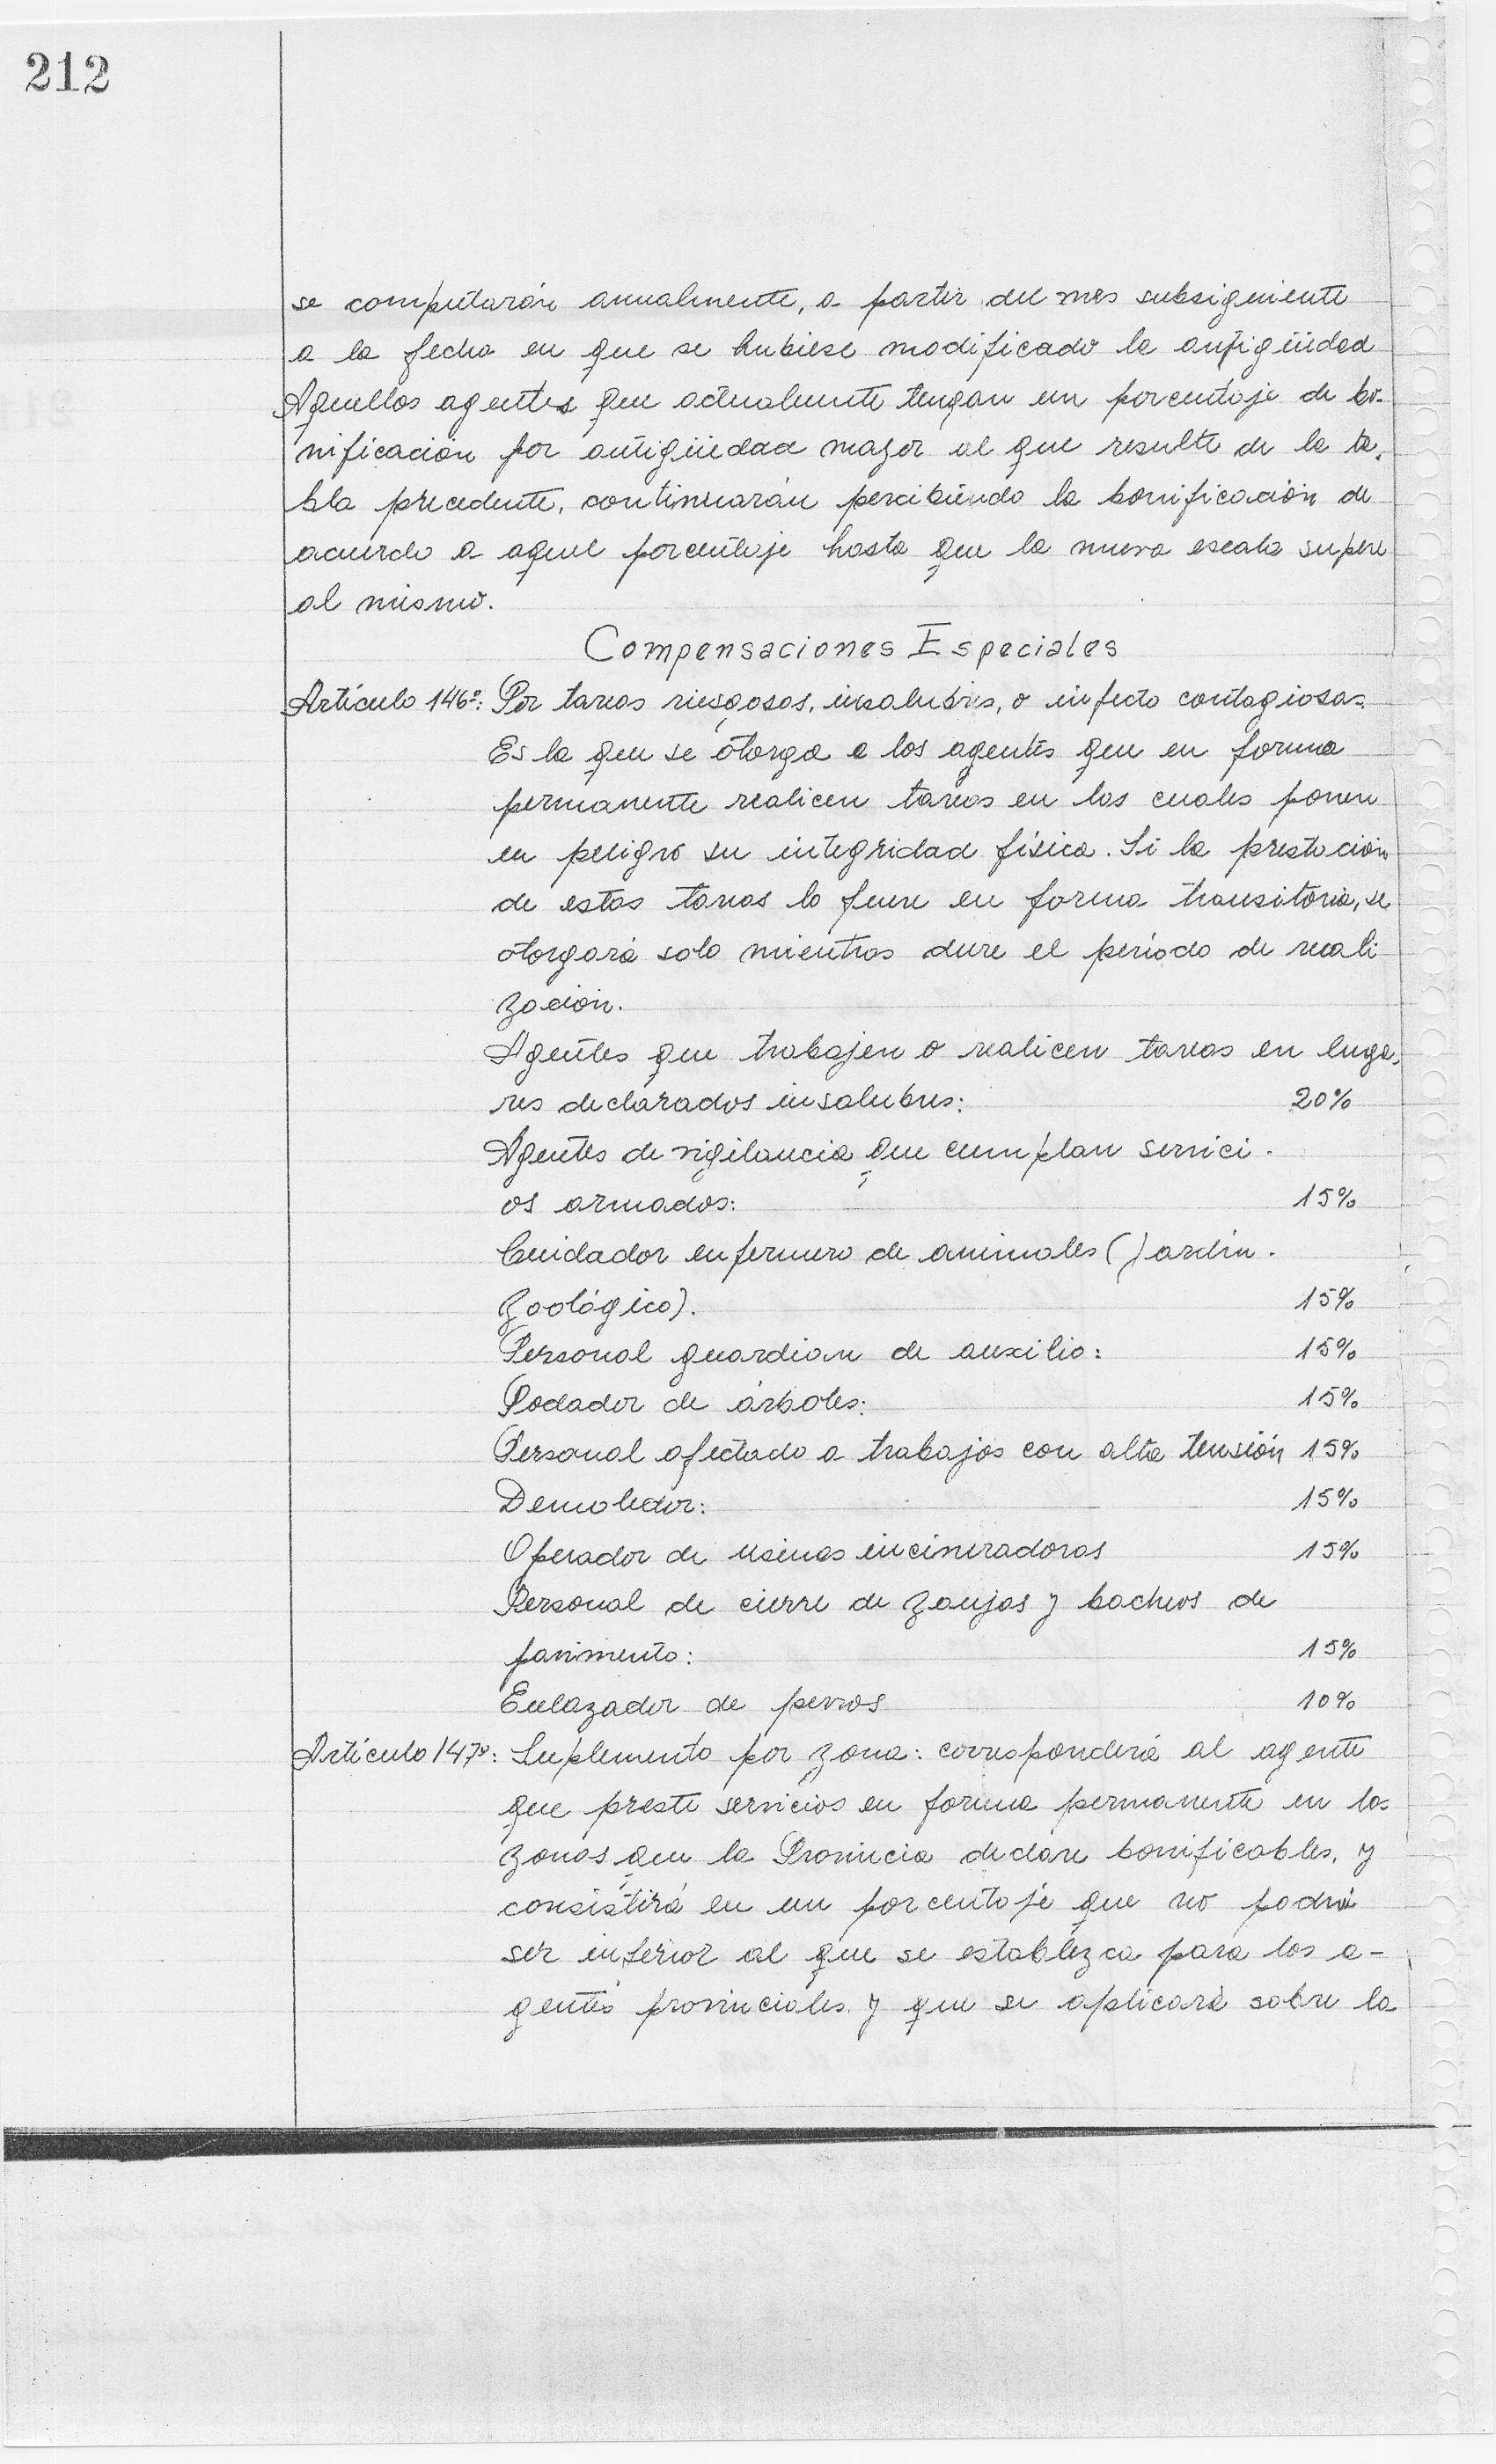 212
se computarán anualmente, a partir del mes subsiguiente
a la fecha en que se hubiese modificado la antigüedad
Aquellos agentes que actualmente tengan un porcentaje de bo-
nificación por antigüedad mayor al que resulte de la ta-
bla precedente, continuarán percibiendo la bonificación de
acuerdo a aquel porcentaje hasta que la nueva escala supere
al mismo.
Compensaciones Especiales
Artículo 146º: Por tareas riesgosas, insalubres, o infecto contagiosas.
Es la que se otorga a los agentes que en forma
permanente realicen tareas en las cuales ponen
en peligro su integridad física. Si la prestación
de estas tareas lo fuere en forma transitoria, se
otorgará solo mientras dure el período de reali
zación.
Agentes que trabajen o realicen tareas en luga-
res declarados insalubres: 20%
Agentes de vigilancia que cumplan servici-
os armados: 15%
Cuidador enfermero de animales (Jardín-
Zoológico). 15%
Personal guardian de auxilio: 15%
Podador de árboles: 15%
Personal afectado a trabajos con alta tensión 15%
Demoledor: 15%
Operador de usinas incineradoras 15%
Personal de cierre de zanjas y bacheos de
pavimento: 15%
Enlazador de perros 10%
Artículo 147º: Suplemento por zona: corresponderá al agente
que preste servicios en forma permanente en las
zonas que la Provincia declare bonificables, y
consistirá en un porcentaje que no podrá
ser inferior al que se establezca para los a-
gentes provinciales y que se aplicará sobre la